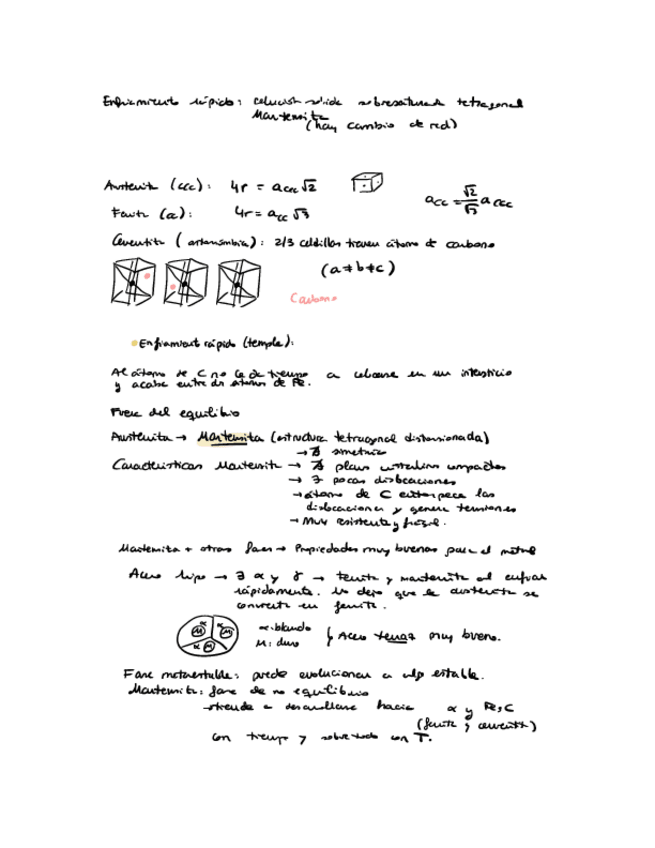 Enfriamiento rápido: solución sólida sobresaturada tetragonal
Martensita
(hay cambio de red)
Austenita (ccc): 4r = a ccc √2
a cc = √2/√3 a ccc
Ferrita (α): 4r = a cc √3
Cementita (ortorrómbica): 2/3 celdillas tienen átomo de carbono
(a ≠ b ≠ c)
Carbono
Enfriamiento rápido (temple):
Al átomo de C no le da tiempo a colocarse en un intersticio
y acaba entre dos átomos de Fe.
Fuera del equilibrio
Austenita → Martensita (estructura tetragonal distorsionada)
→ ∄ simetría
Características Martensita → ∄ planos cristalinos compactos
→ ∃ pocas dislocaciones
→ átomo de C entorpece las
dislocaciones y genera tensiones
→ Muy resistente y frágil.
Martensita + otras fases → Propiedades muy buenas para el metal
Acero hipo → ∃ α y γ → ferrita y martensita al enfriar
rápidamente. No dejo que la austenita se
convierta en ferrita.
α M α M α M
α: blando
M: duro
} Acero tenaz muy bueno.
Fase metaestable: puede evolucionar a algo estable.
Martensita: fase de no equilibrio
→ tiende a desarrollarse hacia α y Fe₃C
(ferrita y cementita)
con tiempo y sobre todo con T.